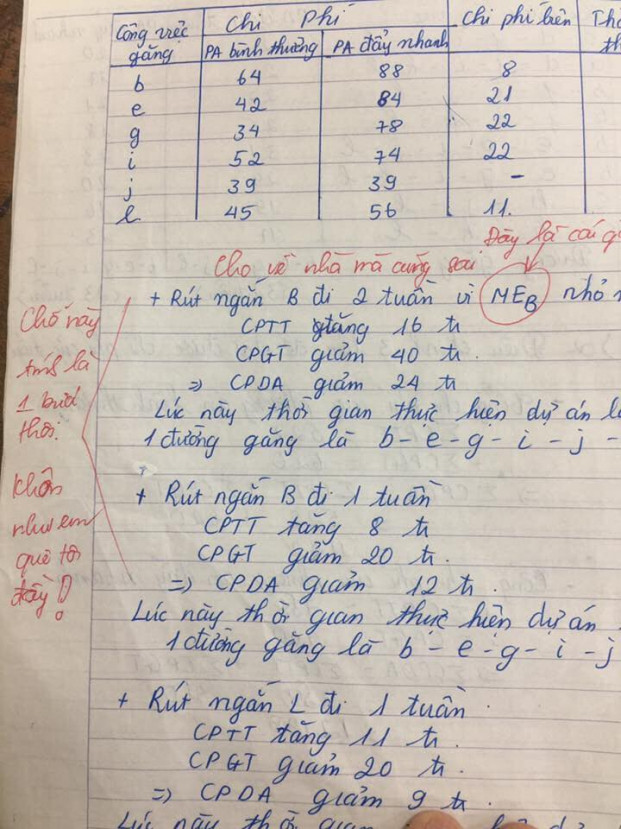 Công việc găng | Chi Phí | Chi phí biên
PA bình thường | PA đẩy nhanh
b | 64 | 88 | 8
e | 42 | 84 | 21
g | 34 | 78 | 22
i | 52 | 74 | 22
j | 39 | 39 | -
l | 45 | 56 | 11.
Đây là cái
Cho về nhà mà cũng sai
+ Rút ngắn B đi 2 tuần vì MEB nhỏ
CPTT tăng 16 tr
CPGT giảm 40 tr.
=> CPDA giảm 24 tr
Lúc này thời gian thực hiện dự án
1 đường găng là b-e-g-i-j-
Chỗ này
tính là
1 bước
thôi.
Khôn
như em
quê tôi
đầy!
+ Rút ngắn B đi 1 tuần
CPTT tăng 8 tr
CPGT giảm 20 tr.
=> CPDA giảm 12 tr.
Lúc này thời gian thực hiện dự án
1 đường găng là b-e-g-i-j
+ Rút ngắn L đi 1 tuần.
CPTT tăng 11 tr.
CPGT giảm 20 tr.
=> CPDA giảm 9 tr.
Lúc này thời gian